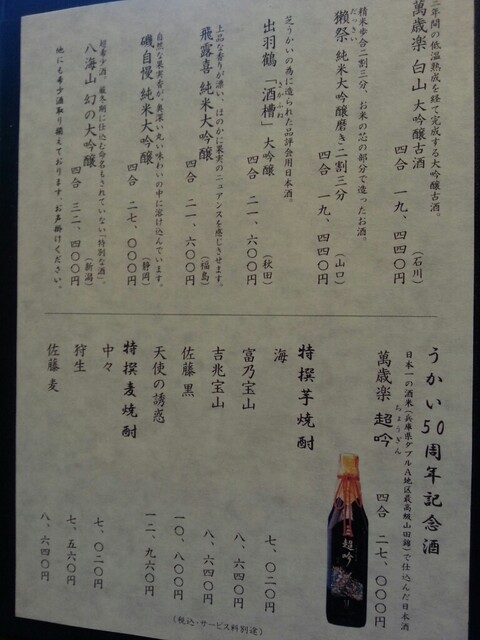 三年間の低温熟成を経て完成する大吟醸古酒。
萬歳楽 白山 大吟醸古酒
(石川)
四合 一九、四四〇円
精米歩合二割三分、お米の芯の部分で造ったお酒。
だっさい
獺祭 純米大吟醸磨き二割三分
(山口)
四合 一九、四四〇円
芝うかいの為に造られた品評会用日本酒。
さかふね
出羽鶴 「酒槽」 大吟醸
(秋田)
四合 二一、六〇〇円
上品な香りが漂い、ほのかに果実のニュアンスを感じさせます。
飛露喜 純米大吟醸
(福島)
四合 二一、六〇〇円
自然な果実香が、奥深い丸い味わいの中に溶け込んでいます。
磯自慢 純米大吟醸
(静岡)
四合 二七、〇〇〇円
超希少酒、厳冬期に仕込む命名もされていない「特別な酒」。
八海山 幻の大吟醸
(新潟)
四合 三二、四〇〇円
他にも希少酒取り揃えております。お声掛けください。
うかい50周年記念酒
日本一の酒米(兵庫県ダブルA地区最高級山田錦)で仕込んだ日本酒
ちょうぎん
萬歳楽 超吟
四合 二七、〇〇〇円
超吟
特撰芋焼酎
海 七、〇二〇円
富乃宝山 八、六四〇円
吉兆宝山 八、六四〇円
佐藤黒 一〇、八〇〇円
天使の誘惑 一二、九六〇円
特撰麦焼酎
中々 七、〇二〇円
狩生 七、五六〇円
佐藤 麦 八、六四〇円
(税込・サービス料別途)